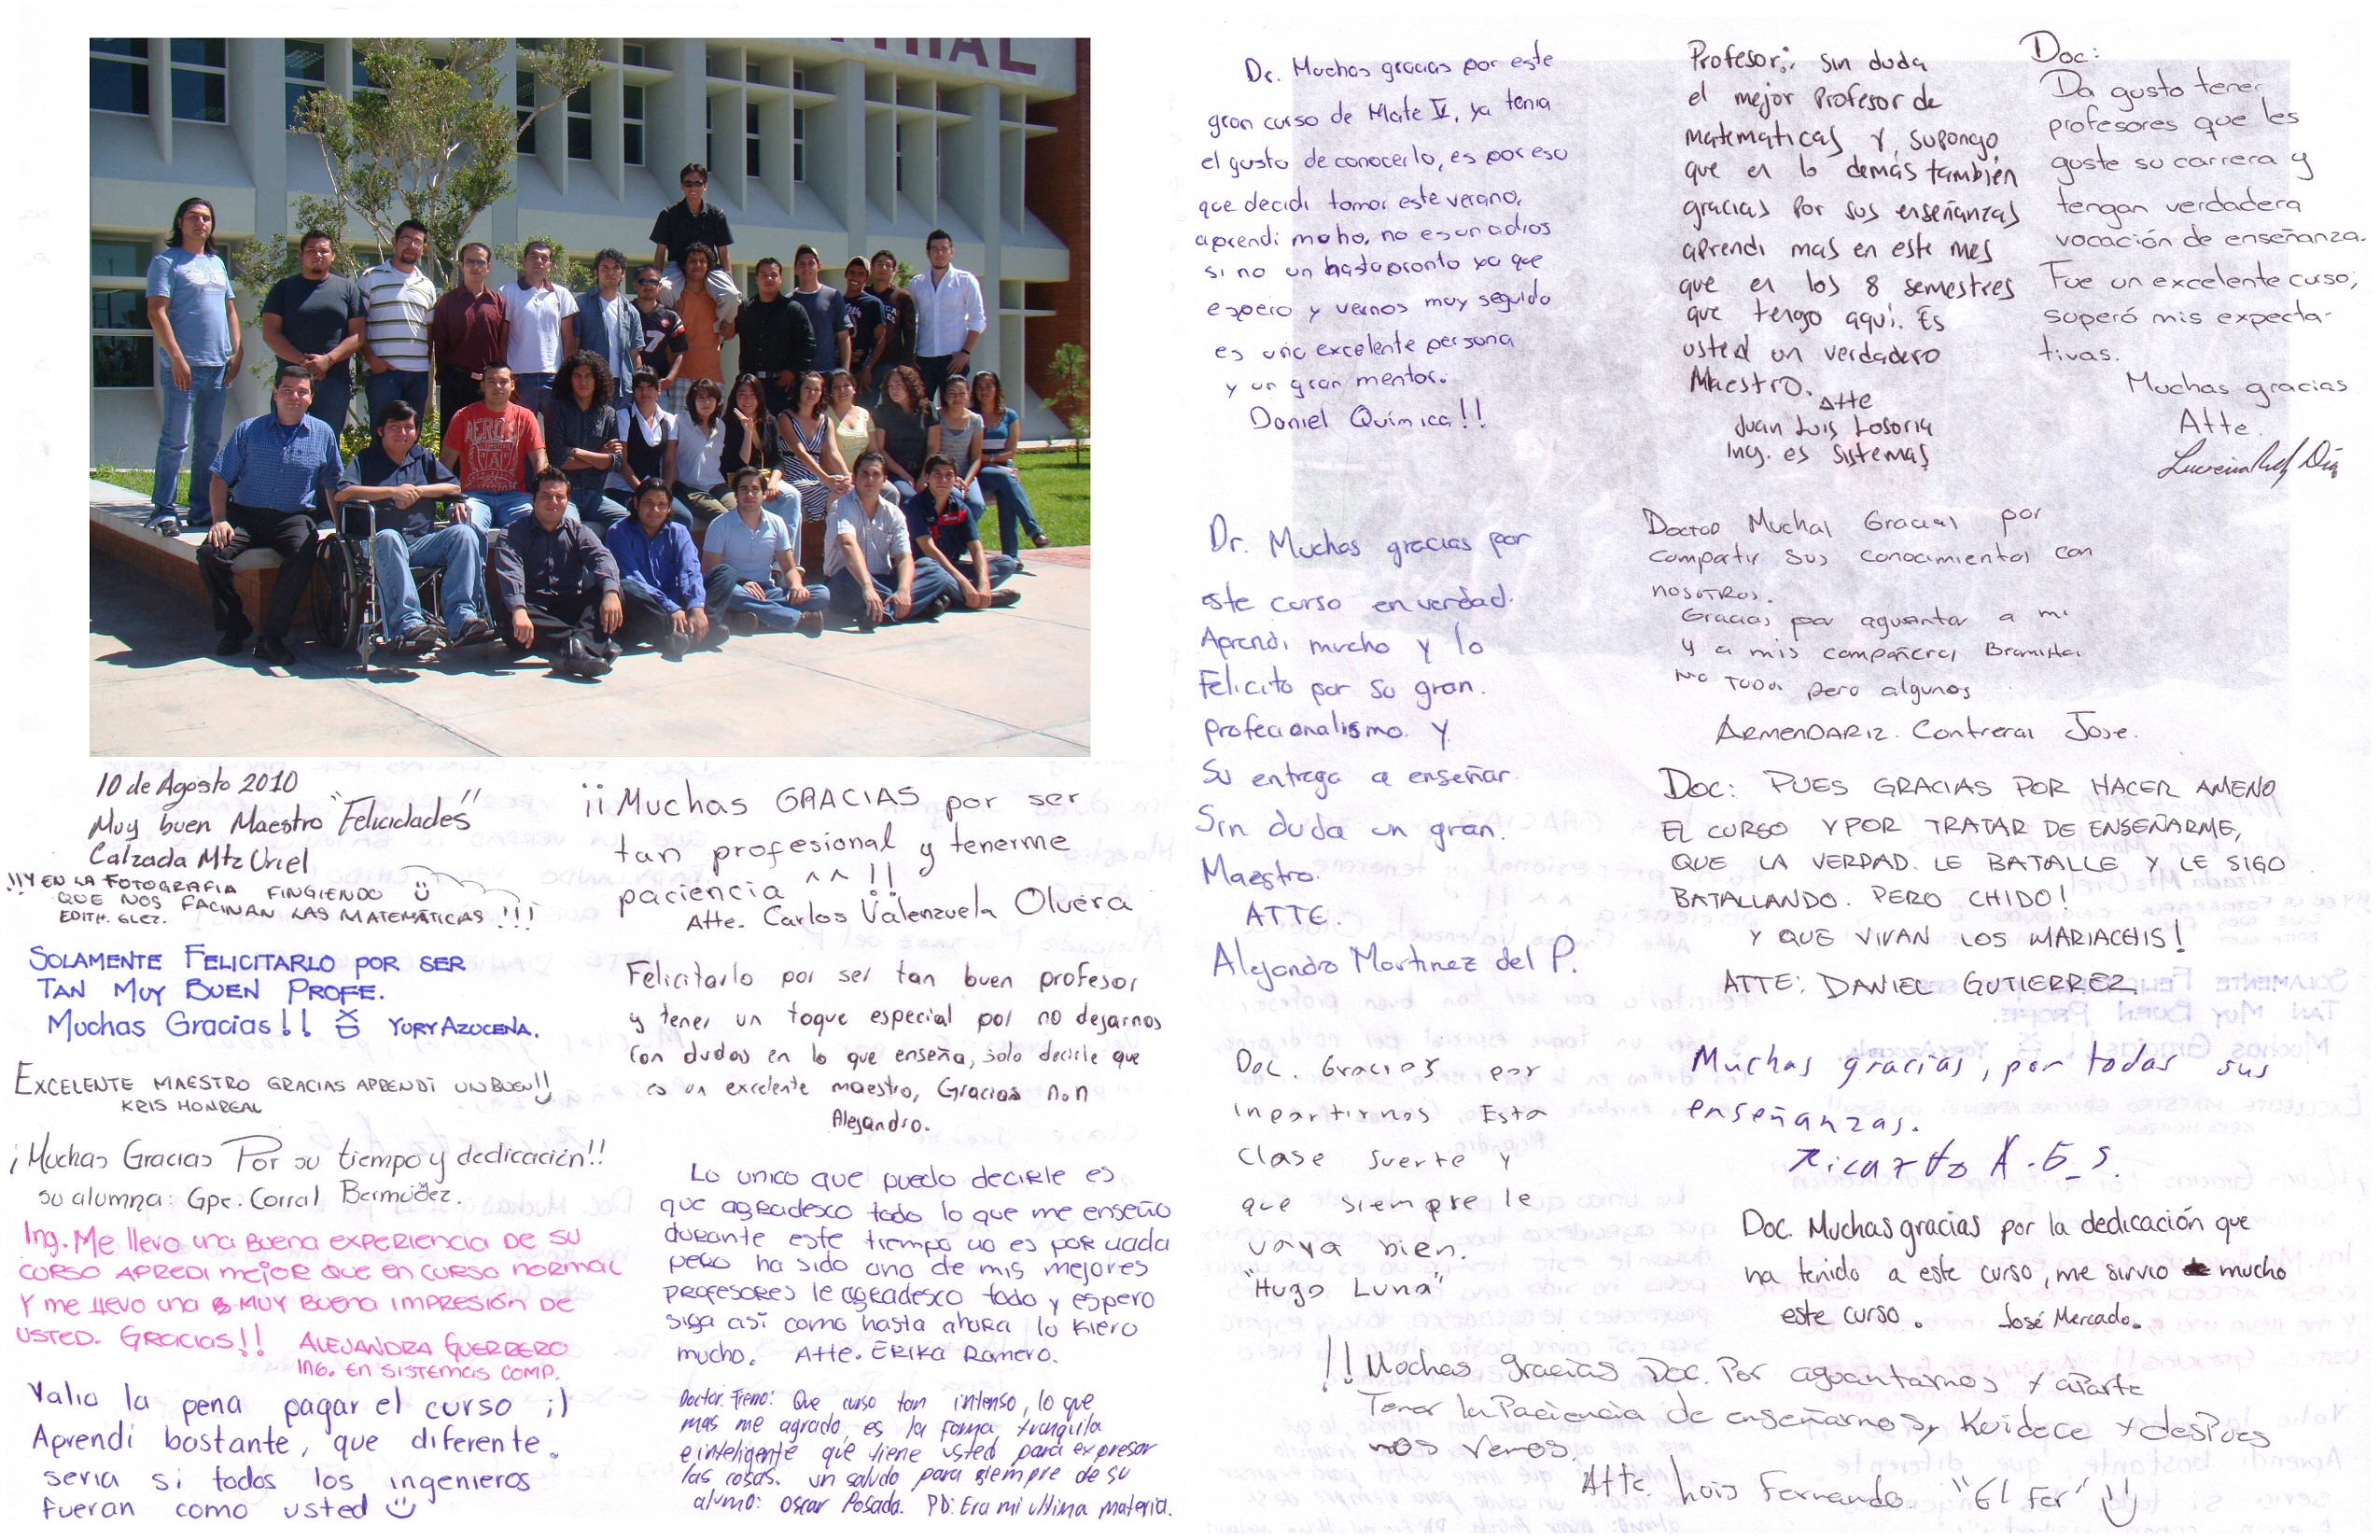 10 de Agosto 2010
Muy buen Maestro "Felicidades"
Calzada Mtz Uriel
!!Y EN LA FOTOGRAFIA FINGIENDO
QUE NOS FACINAN LAS MATEMATICAS !!!
EDITH. GLEZ.
SOLAMENTE FELICITARLO POR SER
TAN MUY BUEN PROFE.
Muchas Gracias!! XD YURY AZUCENA.
EXCELENTE MAESTRO GRACIAS APRENDÍ UN BUEN!!
KRIS MONREAL
¡Muchas Gracias Por su tiempo y dedicación!!
su alumna: Gpe. Corral Bermúdez.
Ing. Me llevo una Buena EXPERIENCIA DE SU
CURSO APREDI mejor que en CURSO NORMAL
Y me llevo una MUY BUENA IMPRESIÓN DE
USTED. GRACIAS!! ALEJANDRA GUERRERO
ING. EN SISTEMAS COMP.
Valio la pena pagar el curso ;)
Aprendí bastante, que diferente.
seria si todos los ingenieros
fueran como usted
¡¡Muchas GRACIAS por ser
tan profesional y tenerme
paciencia ^^!!
Atte. Carlos Valenzuela Olvera
Felicitarlo por ser tan buen profesor
y tener un toque especial por no dejarnos
con dudas en lo que enseña, solo decirle que
es un excelente maestro, Gracias
Alejandro.
Lo unico que puedo decirle es
que agradesco todo lo que me enseño
durante este tiempo no es por nada
pero ha sido uno de mis mejores
profesores le agradesco todo y espero
siga así como hasta ahora lo kiero
mucho. Atte. Erika Romero.
Doctor. Que curso tan intenso, lo que
mas me agrado, es la forma tranquila
e inteligente que tiene usted para expresar
las cosas. un saludo para siempre de su
alumo: Oscar Posada. PD: Era mi ultima materia.
Dr. Muchas gracias por este
gran curso de Mate V, ya tenia
el gusto de conocerlo, es por eso
que decidi tomar este verano,
aprendi mcho, no es un adios
si no un hasta pronto ya que
espero y vernos muy seguido
es una excelente persona
y un gran mentor.
Daniel Química!!
Dr. Muchas gracias por
este curso en verdad.
Aprendi mucho y lo
Felicito por su gran.
profecionalismo. y
Su entrega a enseñar.
Sin duda un gran.
Maestro.
ATTE.
Alejandro Martinez del P.
Doc. Gracias por
inpartirnos Esta
clase suerte y
que siempre le
vaya bien.
"Hugo Luna"
Profesor; sin duda
el mejor Profesor de
matematicas y, supongo
que en lo demás también
gracias por sus enseñanzas
aprendi mas en este mes
que en los 8 semestres
que tengo aquí. Es
usted un verdadero
Maestro.
Atte
Juan Luis Losoria
Ing. es Sistemas
Doc:
Da gusto tener
profesores que les
guste su carrera y
tengan verdadera
vocación de enseñanza.
Fue un excelente curso,
superó mis expecta-
tivas.
Muchas gracias
Atte.
Doctor Muchas Gracias por
compartir sus conocimientos con
nosotros.
Gracias por aguantar a mi
y a mis compañeros
No todos pero algunos
ARMENDARIZ. Contreras Jose.
Doc: PUES GRACIAS POR HACER AMENO
EL CURSO Y POR TRATAR DE ENSEÑARME,
QUE LA VERDAD. LE BATALLE Y LE SIGO
BATALLANDO. PERO CHIDO!
Y QUE VIVAN LOS MARIACHIS!
ATTE: DANIEL GUTIERREZ.
Muchas gracias, por todas sus
enseñanzas.
Ricardo A.E.S.
Doc. Muchas gracias por la dedicación que
ha tenido a este curso, me sirvio mucho
este curso. José Mercado.
!!Muchas Gracias Doc. Por aguantarnos y aparte
Tener la Paciencia de enseñarnos, Kuidece y desPues
nos vemos.
Atte. Luis Fernando. "El Fer"